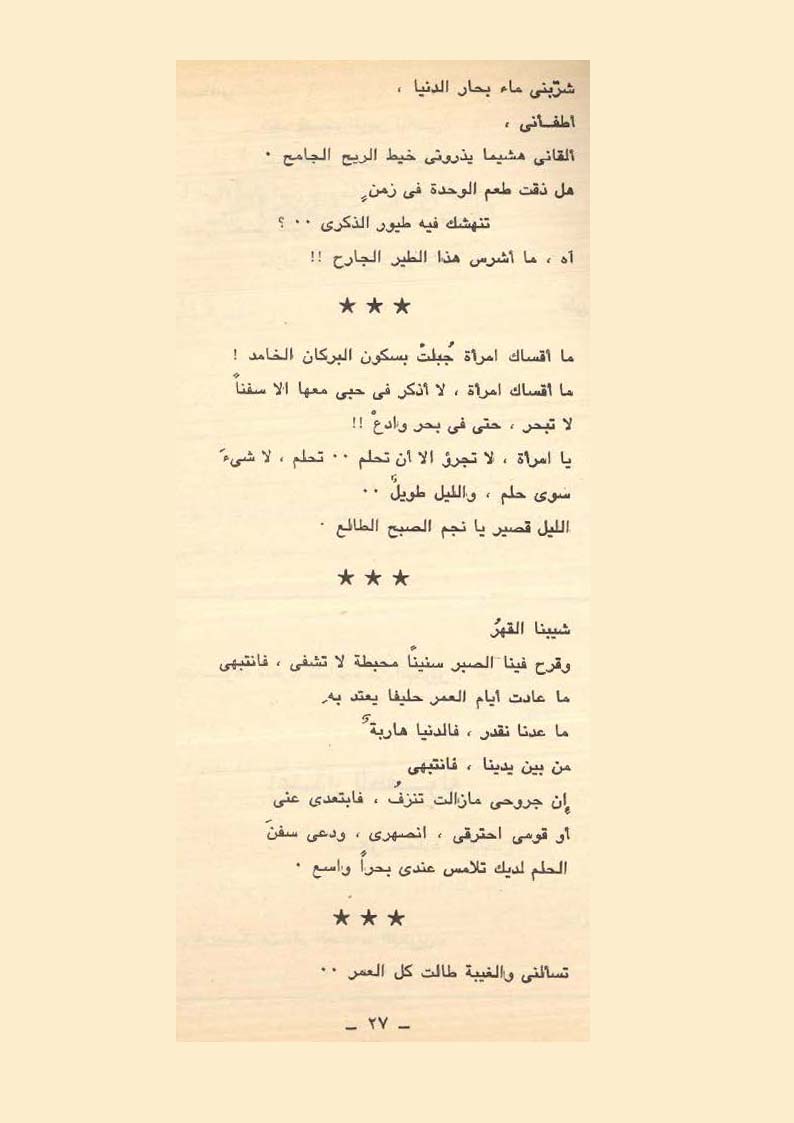 شرّبنى ماء بحار الدنيا ،
أطفـأنى ،
ألقانى هشيما يذروتى خيط الريح الجامح ٠
هل ذقت طعم الوحدة فى زمنٍ
تنهشك فيه طيور الذكرى ٠٠ ؟
آه ، ما أشرس هذا الطير الجارح !!
★ ★ ★
ما أقساك امرأة جُبلتْ بسكون البركان الخامد !
ما أقساك امرأة ، لا أذكر فى حبى معها الا سفناً
لا تبحر ، حتى فى بحر وادعْ !!
يا امرأة ، لا تجرؤ الا أن تحلم ٠٠ تحلم ، لا شىءَ
سوى حلم ، والليل طويلٌ ٠٠
الليل قصير يا نجم الصبح الطالع ٠
★ ★ ★
شيبنا القهرُ
وقرح فينا الصبر سنيناً محبطة لا تشفى ، فانتبهى
ما عادت أيام العمر حليفا يعتد بهِ
ما عدنا نقدر ، فالدنيا هاربةٌ
من بين يدينا ، فانتبهى
إن جروحى مازالت تنزفُ ، فابتعدى عنى
أو قومى احترقى ، انصهرى ، ودعى سفنَ
الحلم لديك تلامس عندى بحراً واسع ٠
★ ★ ★
تسألنى والغيبة طالت كل العمر ٠٠
ـ ٢٧ ـ